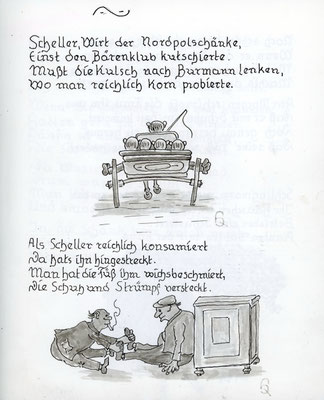 Scheller, Wirt der Nordpolschänke,
Einst den Bärenklub kutschierte.
Mußt die Kutsch nach Burmann lenken,
Wo man reichlich Korn probierte.
Als Scheller reichlich konsumiert
Da hats ihn hingestreckt.
Man hat die Füß ihm wichsbeschmiert,
die Schuh und Strümpf versteckt.